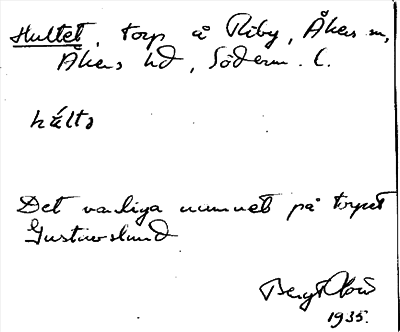 Hultet, torp å Riby, Åkers sn,
Åkers hd, Söderm. l.
húlts
Det vanliga namnet på torpet
Gustavslund
1935.